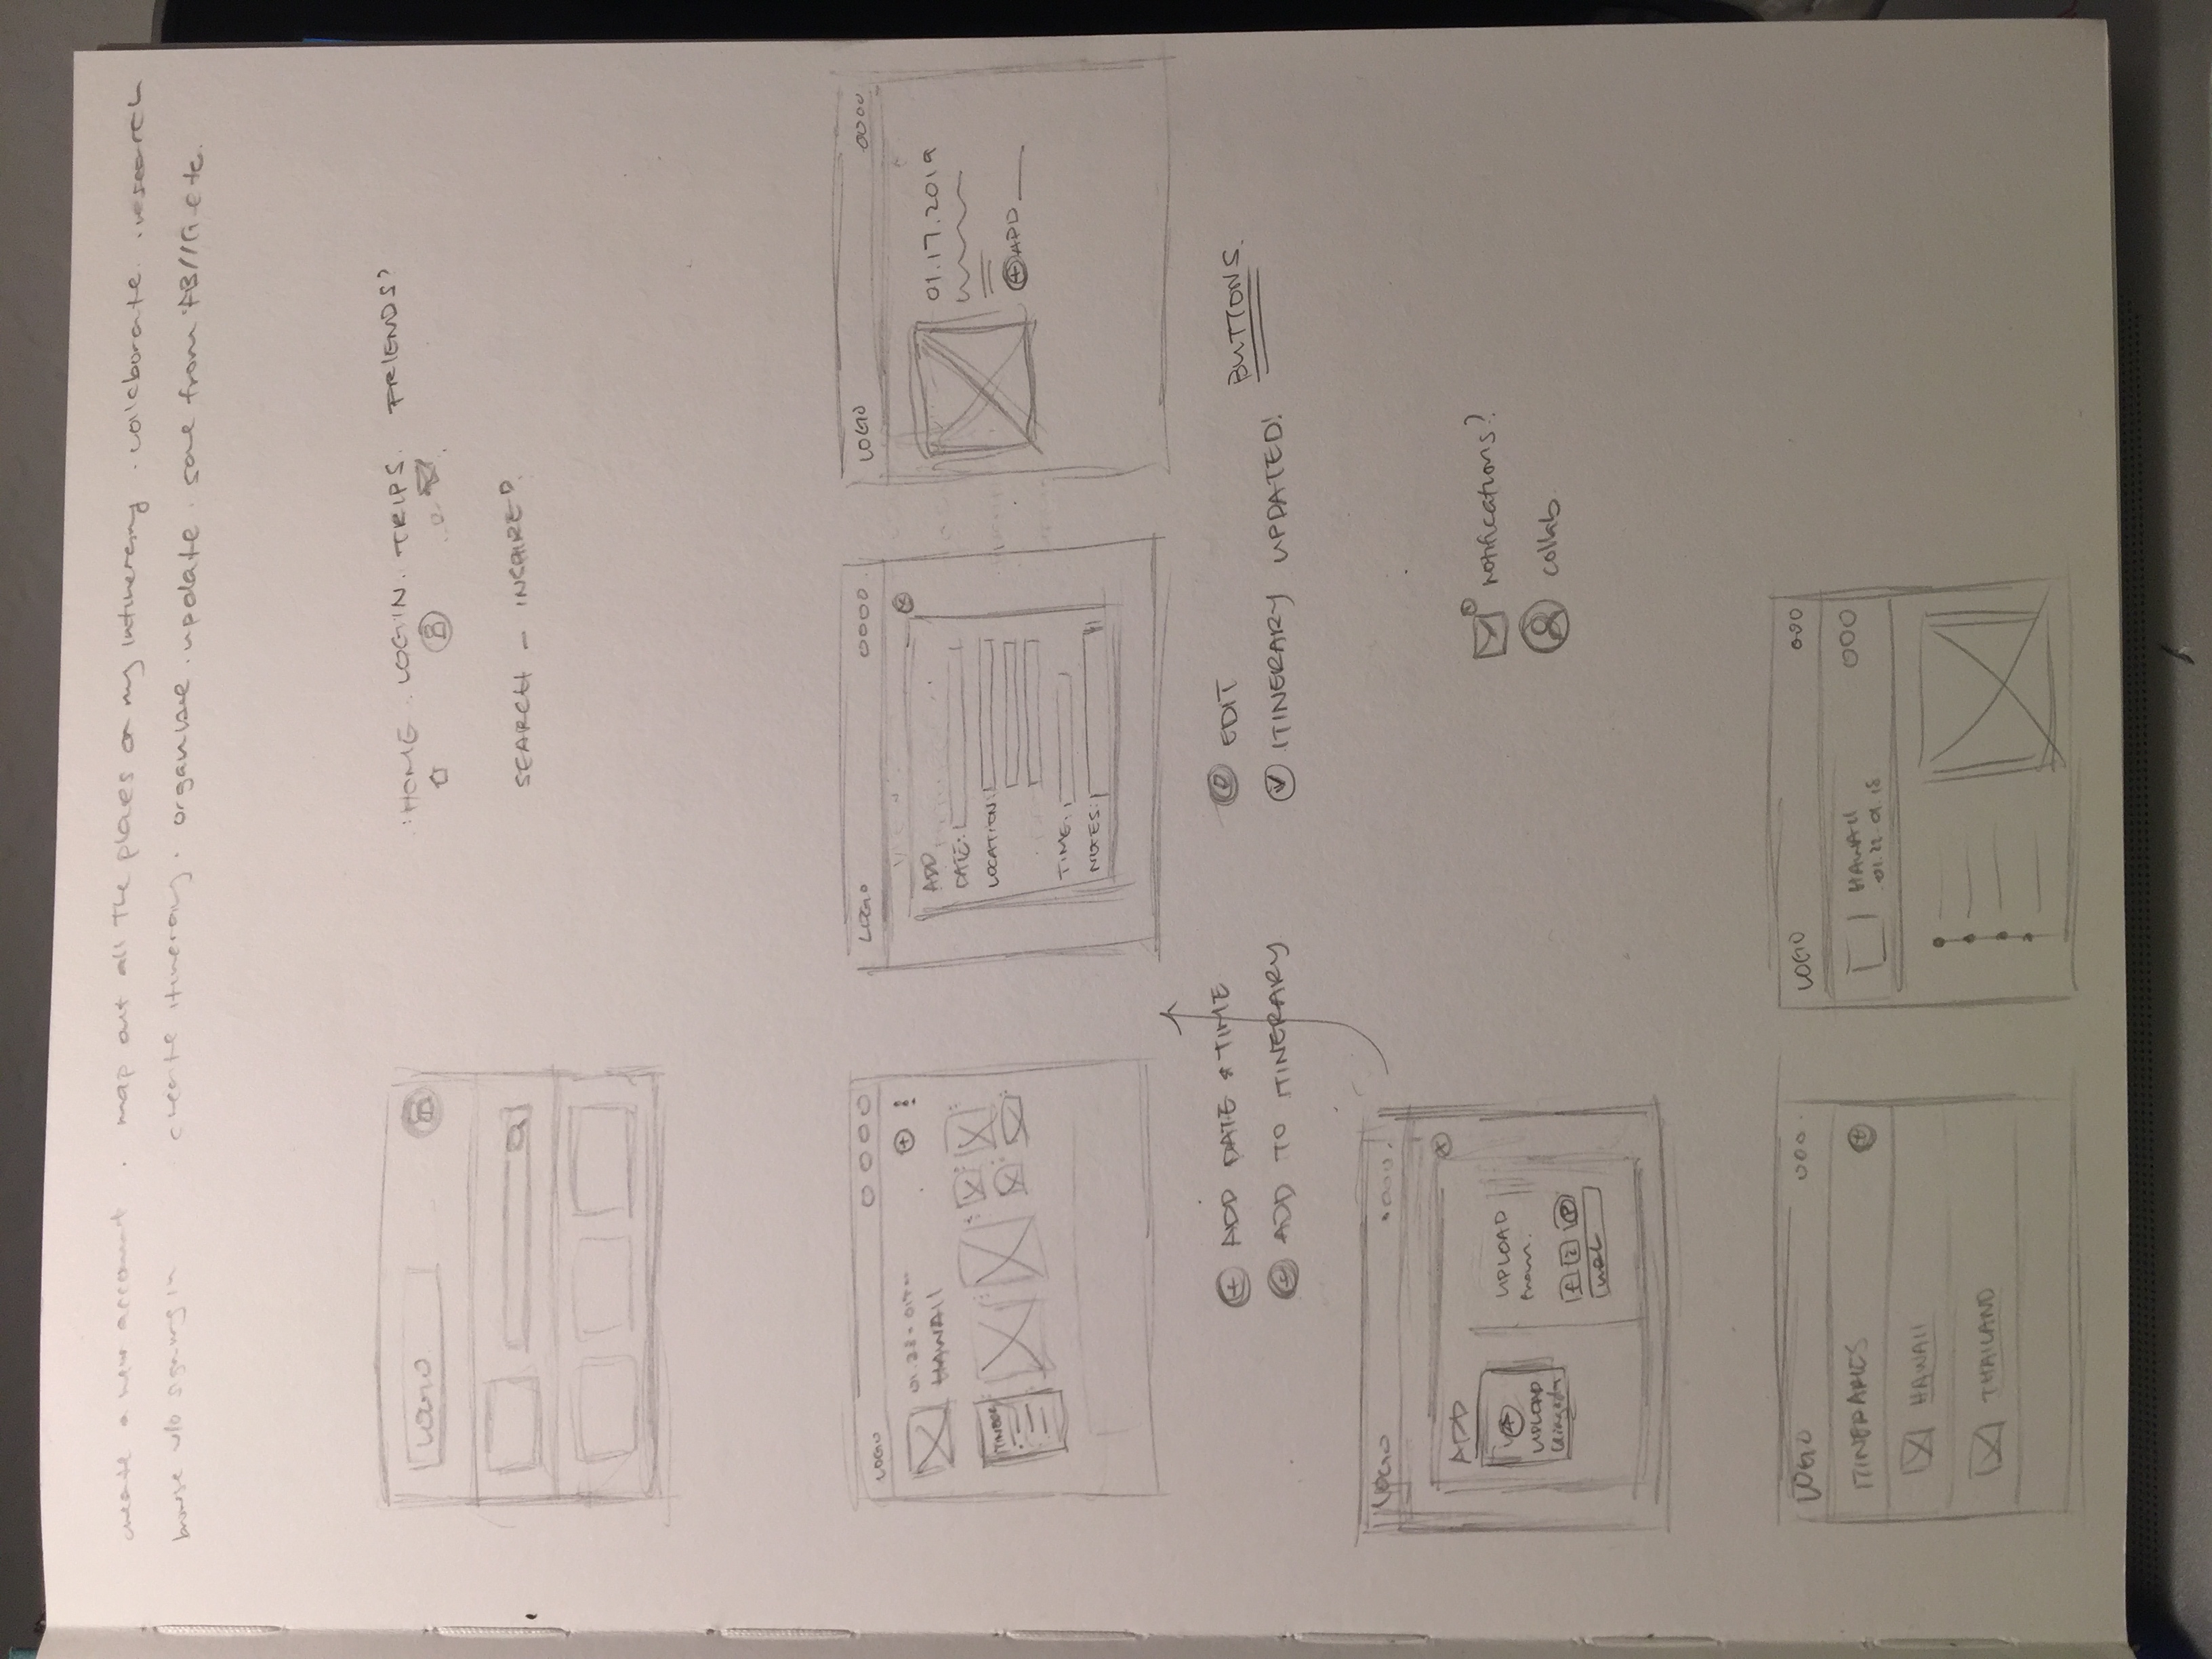 create a new account . map out all the places on my intinerary . collaborate . research
browse w/o signing in create itinerary . organize . update . save from FB/IG etc.
LOGO
HOME . LOGIN . TRIPS . FRIENDS?
SEARCH - INSPIRED
LOGO
HAWAII
LOGO
ADD
DATE:
LOCATION:
TIME:
NOTES:
LOGO
01.17.2019
ADD
ADD DATE & TIME
ADD TO ITINERARY
EDIT
ITINERARY UPDATED!
BUTTONS
LOGO
ADD
UPLOAD
UPLOAD
from.
URL
notifications?
collab
LOGO
ITINERARIES
HAWAII
THAILAND
LOGO
HAWAII